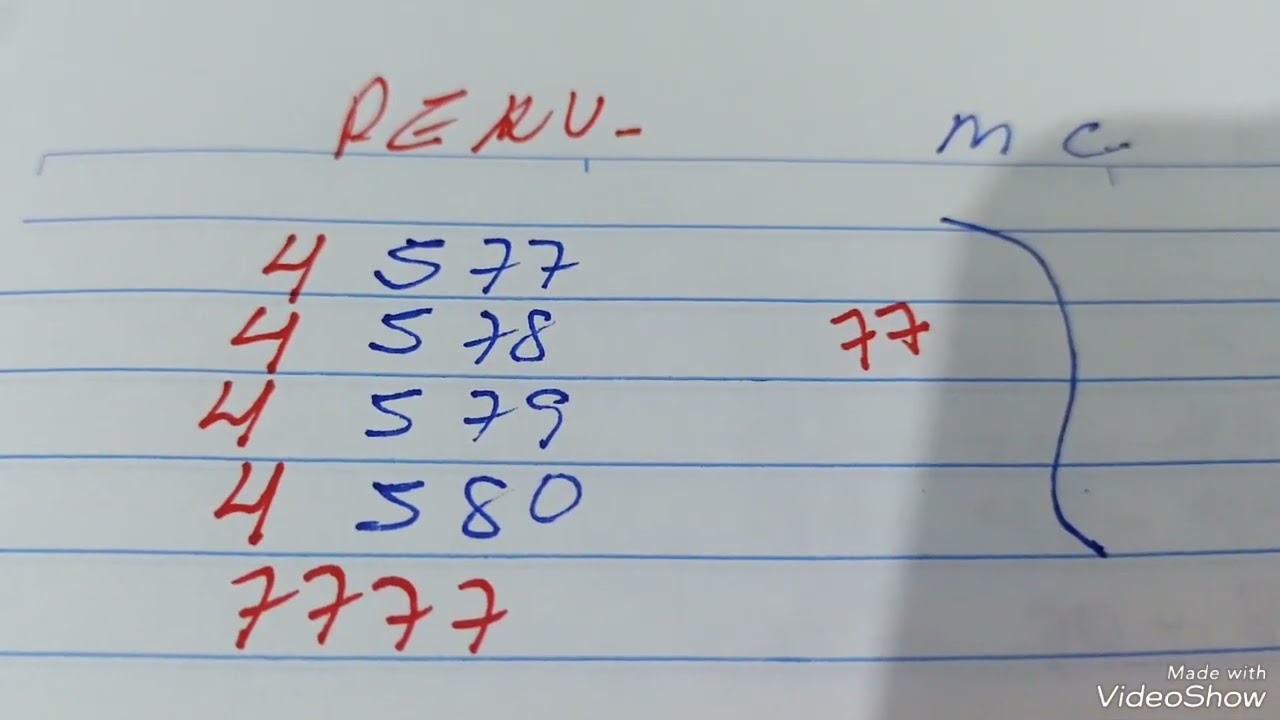 PERU- MC
4 577
4 578 77
4 579
4 580
7777
Made with
VideoShow